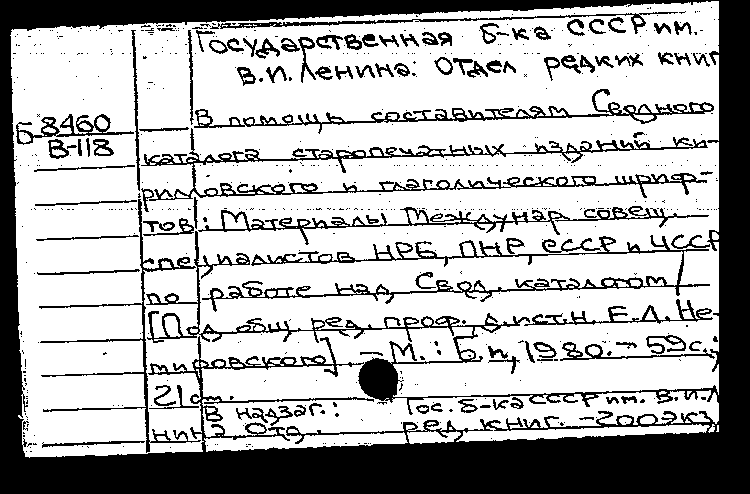 Государственная б-ка СССР им.
В.И. Ленина. Отдел редких книг
Б 8460
В-118
В помощь составителям Сводного
каталога старопечатных изданий ки-
рилловского и глаголического шриф-
тов : Материалы Междунар. совещ.
специалистов НРБ, ПНР, СССР и ЧССР
по работе над Свод. каталогом /
[Под общ. ред. проф., д.ист.н. Е.Л. Не-
мировского]. – М. : Б.и, 1980. – 59 с.;
21 см.
В надзаг.: Гос. б-ка СССР им. В.И.Л
нина. Отд. ред. книг. – 200 экз